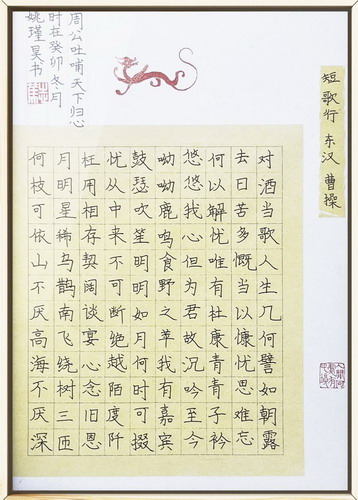 短歌行 东汉 曹操
对酒当歌人生几何譬如朝露
去日苦多慨当以慷忧思难忘
何以解忧唯有杜康青青子衿
悠悠我心但为君故沉吟至今
呦呦鹿鸣食野之苹我有嘉宾
鼓瑟吹笙明明如月何时可掇
忧从中来不可断绝越陌度阡
枉用相存契阔谈宴心念旧恩
月明星稀乌鹊南飞绕树三匝
何枝可依山不厌高海不厌深
周公吐哺天下归心
时在癸卯冬月
姚瑾昊书